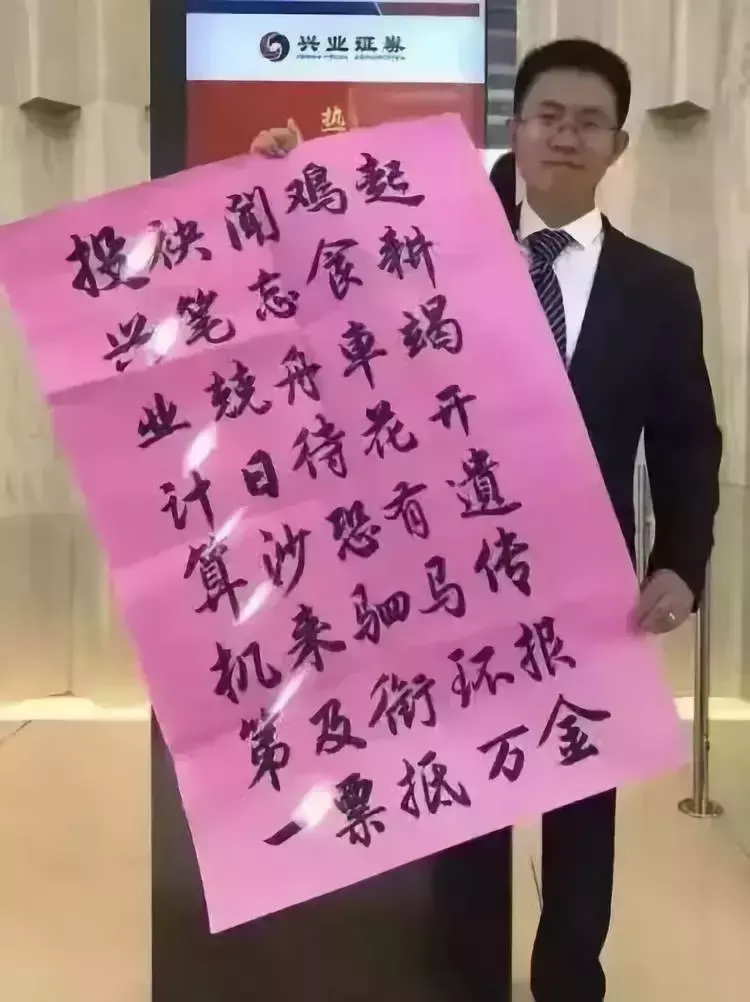 兴业证券
热
投袂闻鸡起
兴笔忘食耕
业兢舟車竭
计日待花开
算沙恐有遺
机来驷马传
第及衔环报
一票抵万金